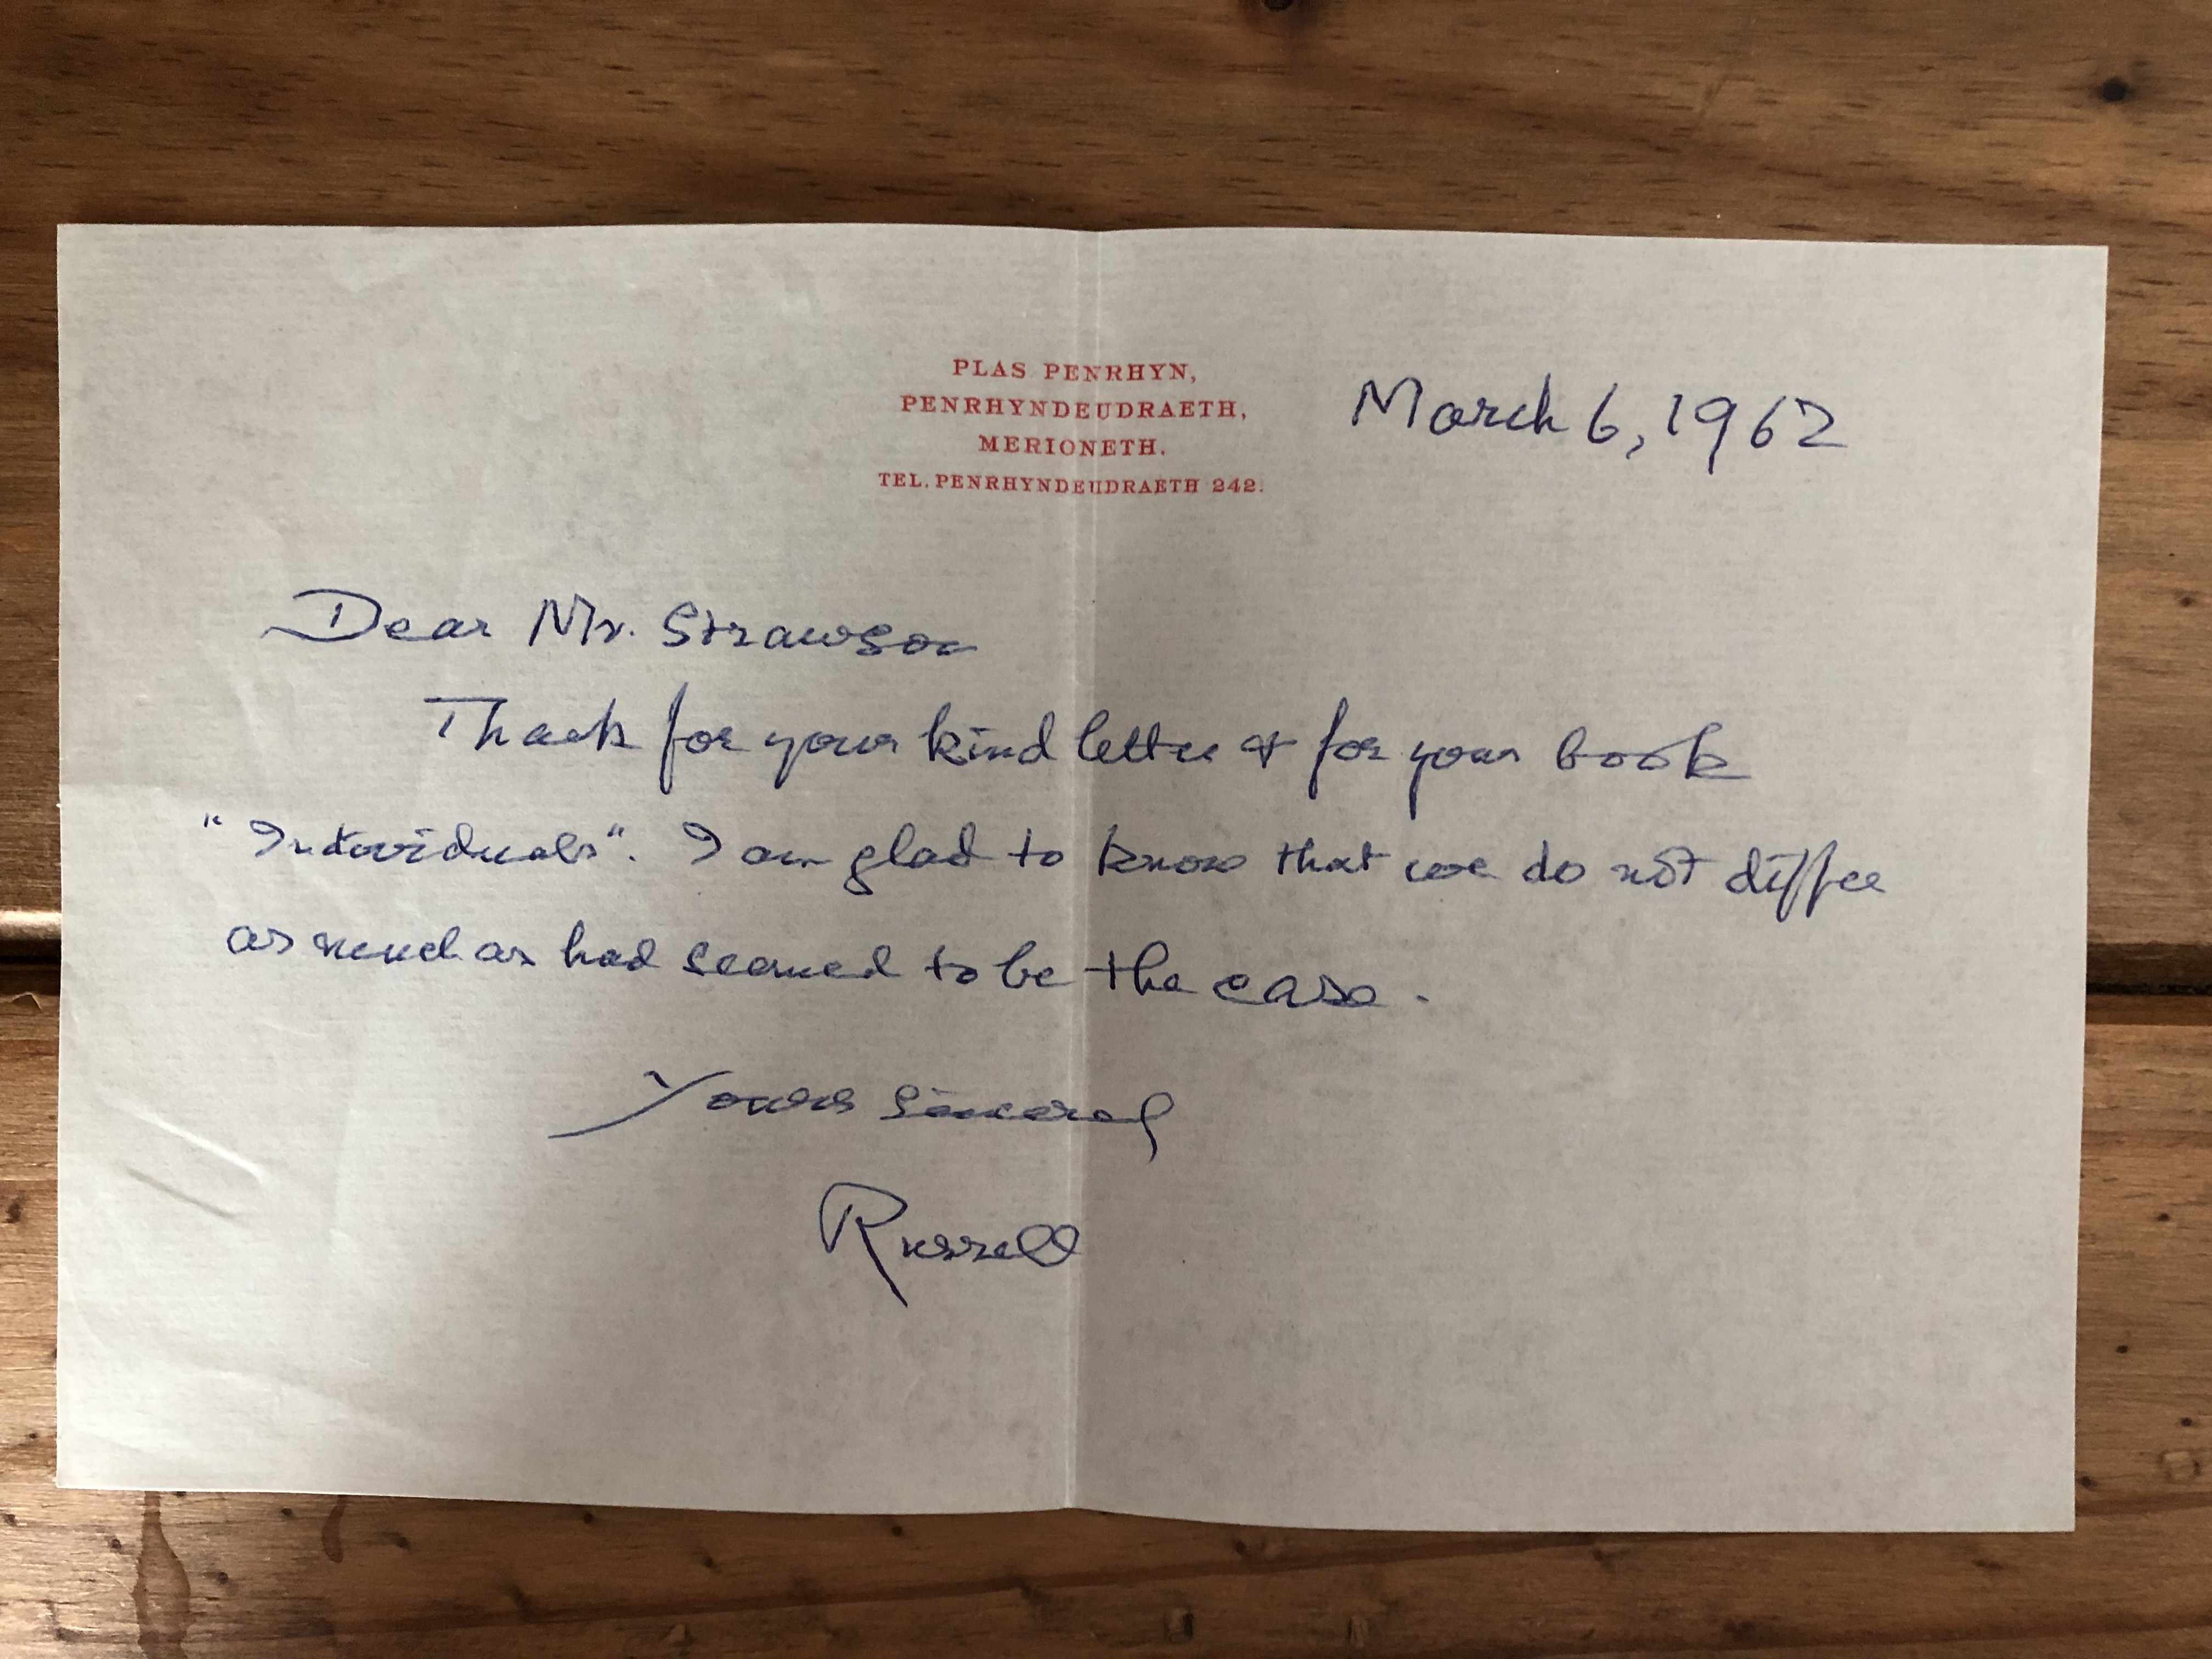 PLAS PENRHYN,
PENRHYNDEUDRAETH,
MERIONETH.
TEL. PENRHYNDEUDRAETH 242.
March 6, 1962
Dear Mr. Strawson
Thank for your kind letter & for your book
"Individuals". I am glad to know that we do not differ
as much as had seemed to be the case.
Yours sincerely
Russell